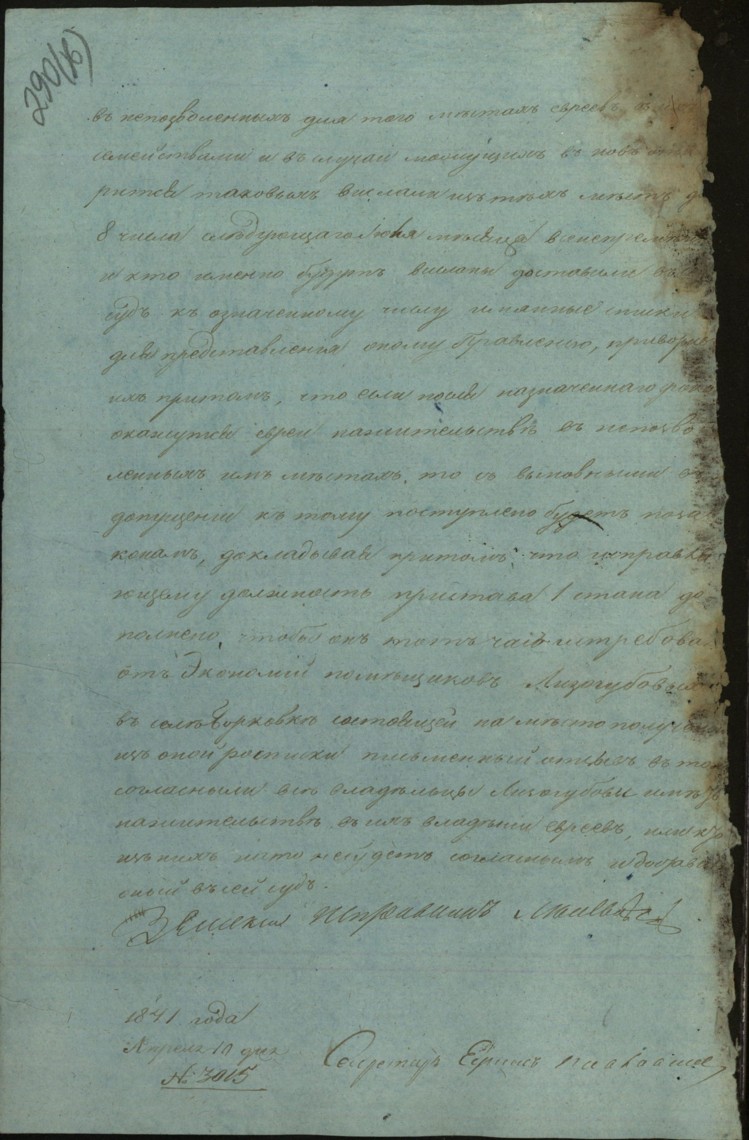 290(б)
въ непозволенныхъ для того мѣстахъ евреевъ
семействами и въ случаи
таковыхъ выслали изъ тѣхъ мѣстъ
8 числа слѣдующаго Іюня мѣсяца
и кто именно будутъ высланы доставили въ
судъ къ означенному числу имянные списки
для представленія оному Правленію,
ихъ притомъ, что если послѣ назначеннаго срока
окажутся евреи на жительствѣ въ непозво
ленныхъ имъ мѣстахъ, то съ виновными въ
допущеніи къ тому поступлено будетъ по за
конамъ, докладывая притомъ, что исправля
ющему должность пристава 1 стана до
полнено, чтобы онъ тотъ часъ истребова
отъ Экономіи помѣщиковъ Лизогубовыхъ
въ селѣ состоящей на мѣсто
изъ оной росписки письменный отзывъ въ том
согласны ли всѣ владѣльцы Лизогубовы имѣть
на жительствѣ въ ихъ владѣніи евреевъ, или кто
изъ нихъ на то не будетъ согласнымъ и
оный въ сей судъ.
Земскій Исправникъ
1841 года
Апрѣля 10 дня
№ 3015
Секретарь